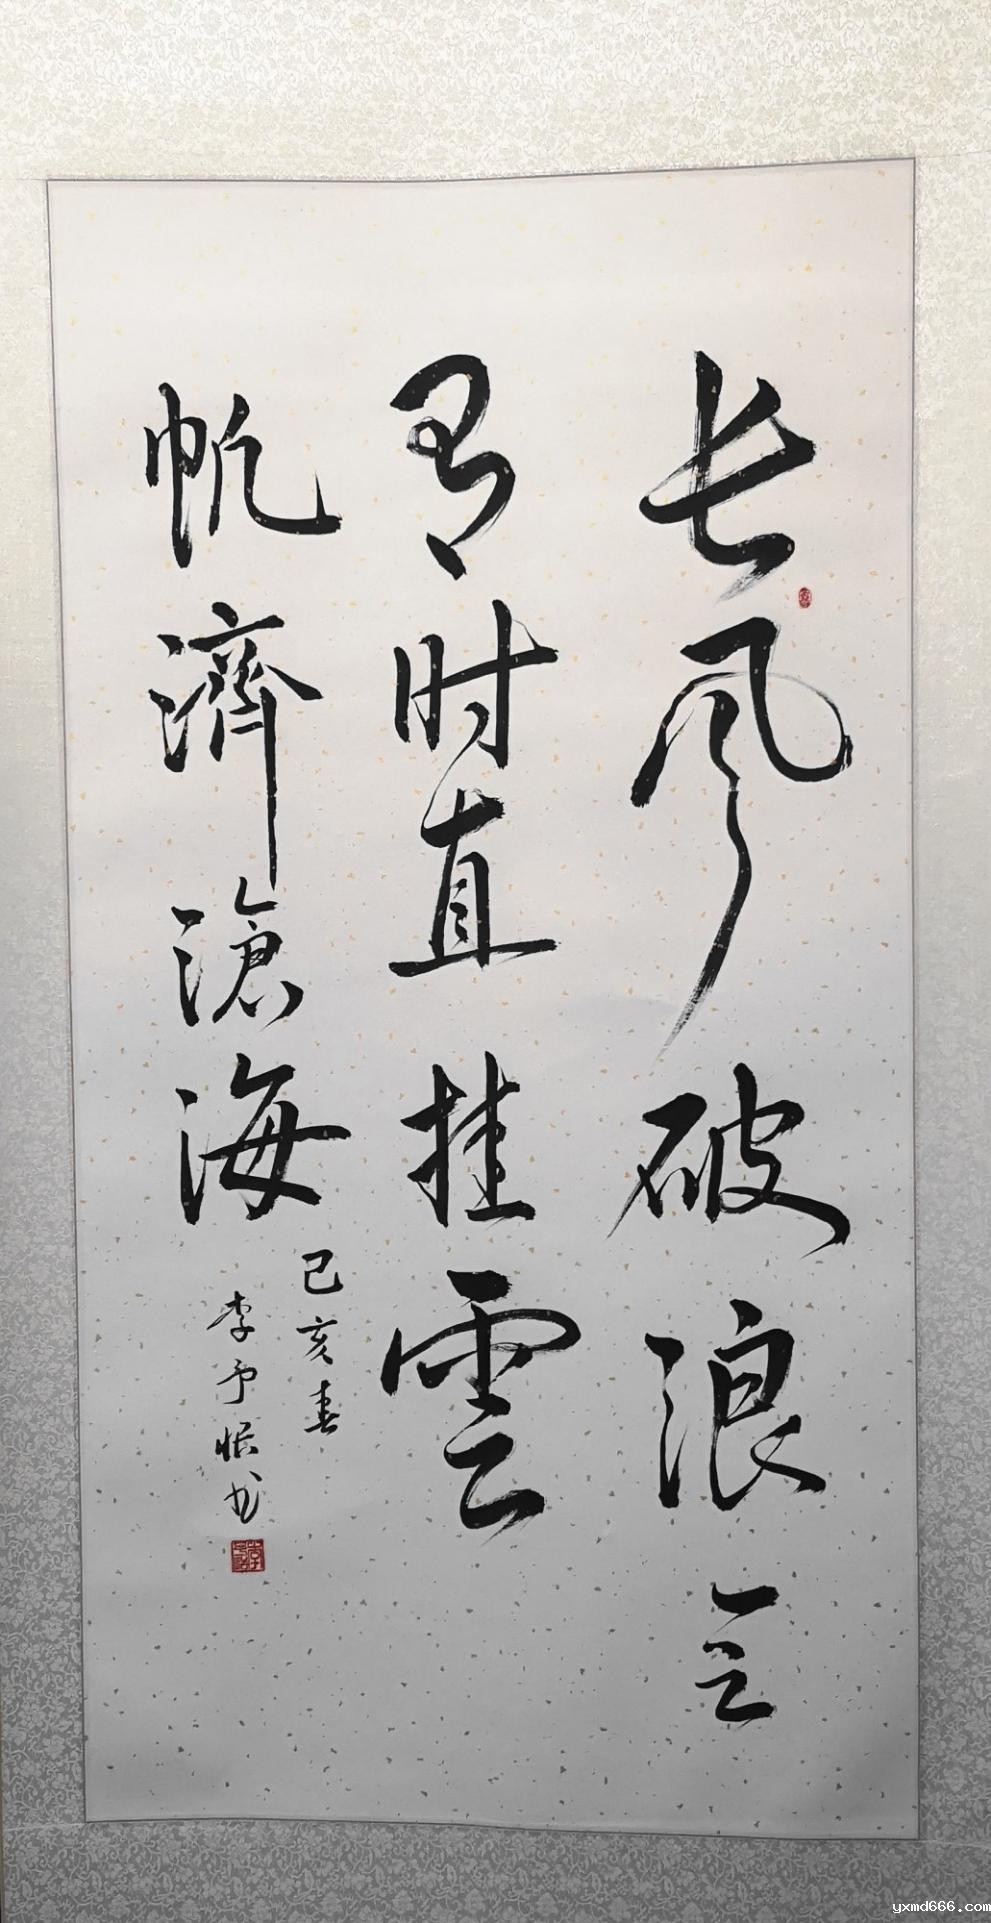 长风破浪会
有时直挂雲
帆濟滄海
己亥春
李予
书
yxmd666.com